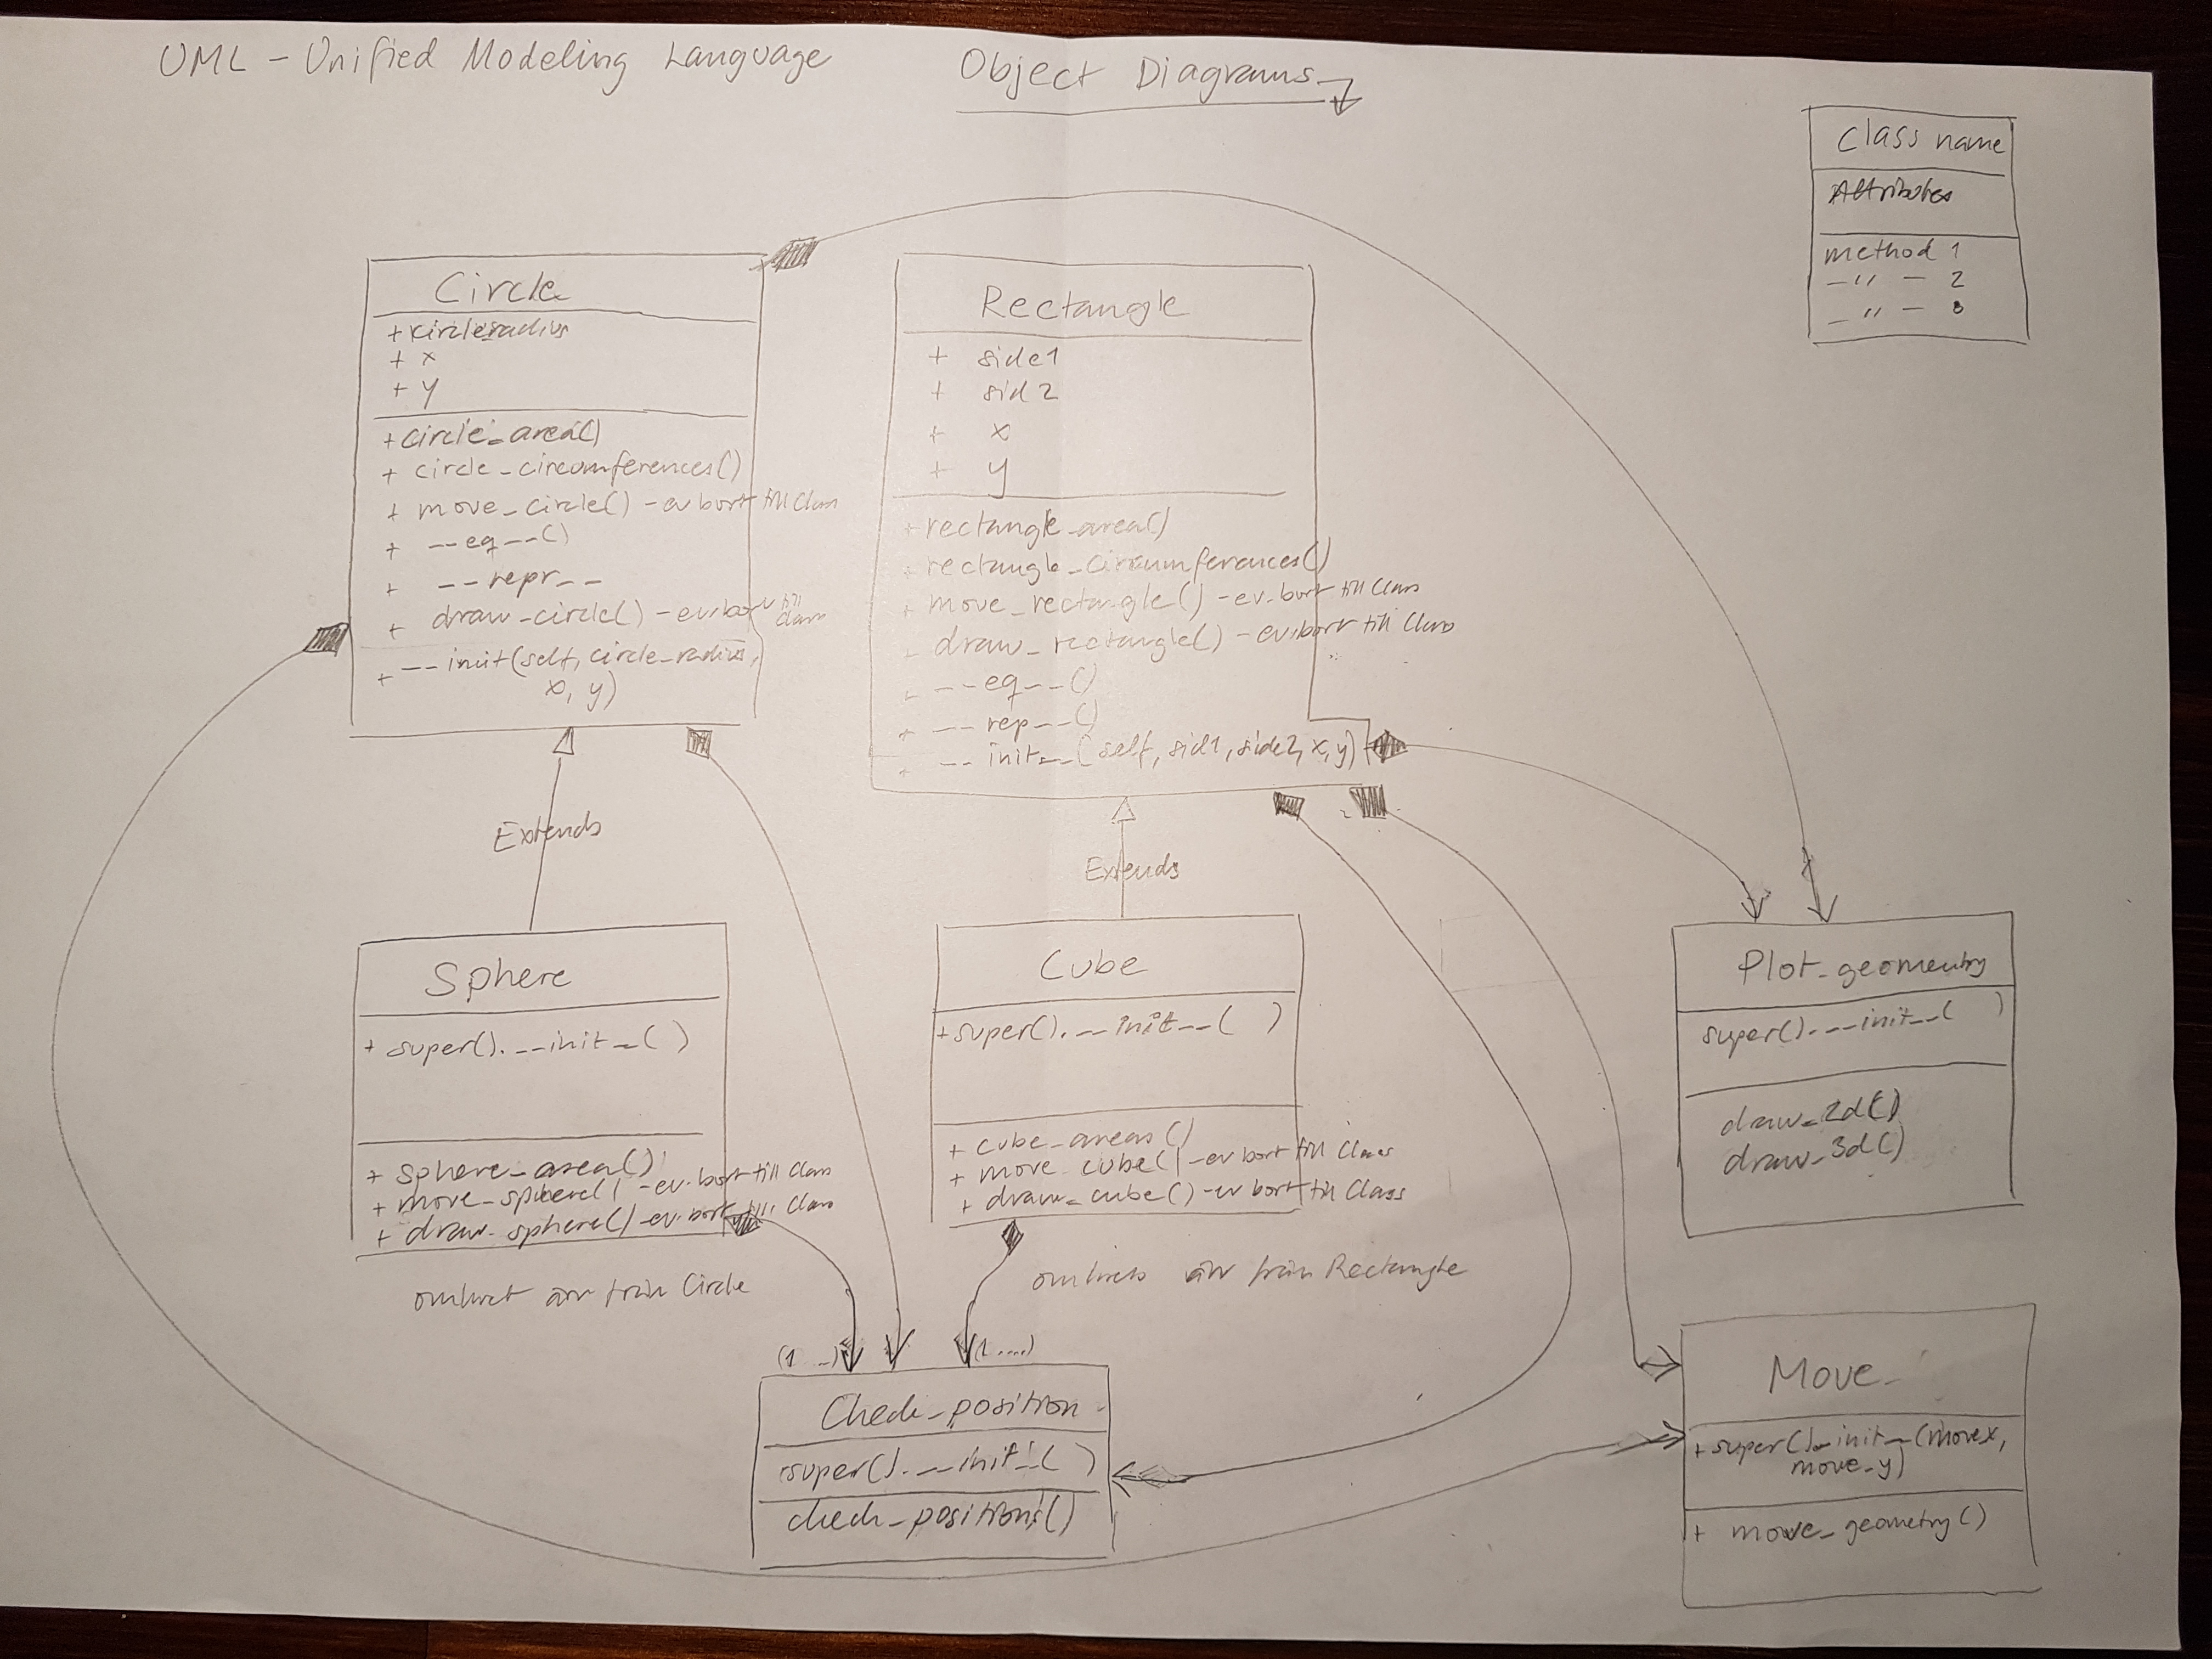 UML - Unified Modeling Language
Object Diagrams
Class name
Attributes
method 1
-"- 2
-"- 3
Circle
+circle_radius
+ x
+ y
+circle_area()
+ circle_circumferences()
+ move_circle() - ev bort till Class
+ __eq__()
+ __repr__
+ draw_circle() - ev. bort till
class
+ __init(self, circle_radius,
x, y)
Rectangle
+ side1
+ sid2
+ x
+ y
+ rectangle_area()
+ rectangle_circumferences()
+ move_rectangle() - ev. bort till Class
draw_rectangle() - ev. bort till Class
__eq__()
+ __rep__()
+ __init__(self, sid1, side2, x, y)
Extends
Extends
Sphere
+ super().__init__( )
+ sphere_area()
+ move_sphere() - ev. bort till Class
+ draw_sphere() - ev. bort till Class
arv från Circle
Cube
+super().__init__( )
+ cube_areas()
+ move_cube() - ev bort till Class
+ draw_cube() - ev bort till Class
arv från Rectangle
Plot_geometry
super().__init__( )
draw_2d()
draw_3d()
(1 ...)
(1 ....)
Check_position
super().__init__( )
check_positions()
Move_
+super()._init__(movex,
move_y)
+ move_geometry()